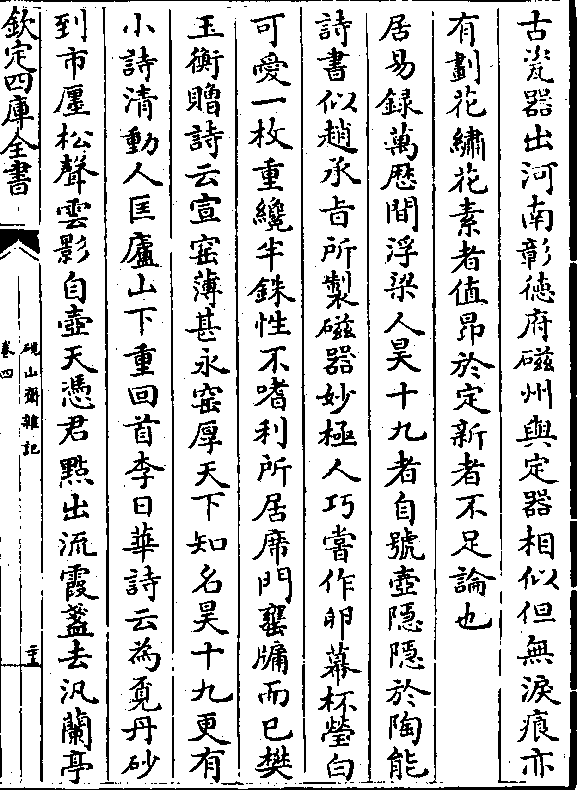 古瓷器出河南彰徳府磁州與定器相似但無淚痕亦
有劃花繡花素者值昂於定新者不足論也
居易録萬厯間浮梁人昊十九者自號壺隠隠於陶能
詩書似趙承㫖所製磁器妙極人巧嘗作卵幕杯瑩白
可愛一枚重纔半銖性不嗜利所居席門甕牖而已樊
玉衡贈詩云宣窑薄甚永窑厚天下知名昊十九更有
小詩清動人匡廬山下重回首李日華詩云為覔丹砂
到市㕓松聲雲影自壺天憑君㸃出流霞盞去汎蘭亭
欽定四庫全書
硯山齋雜記
卷四